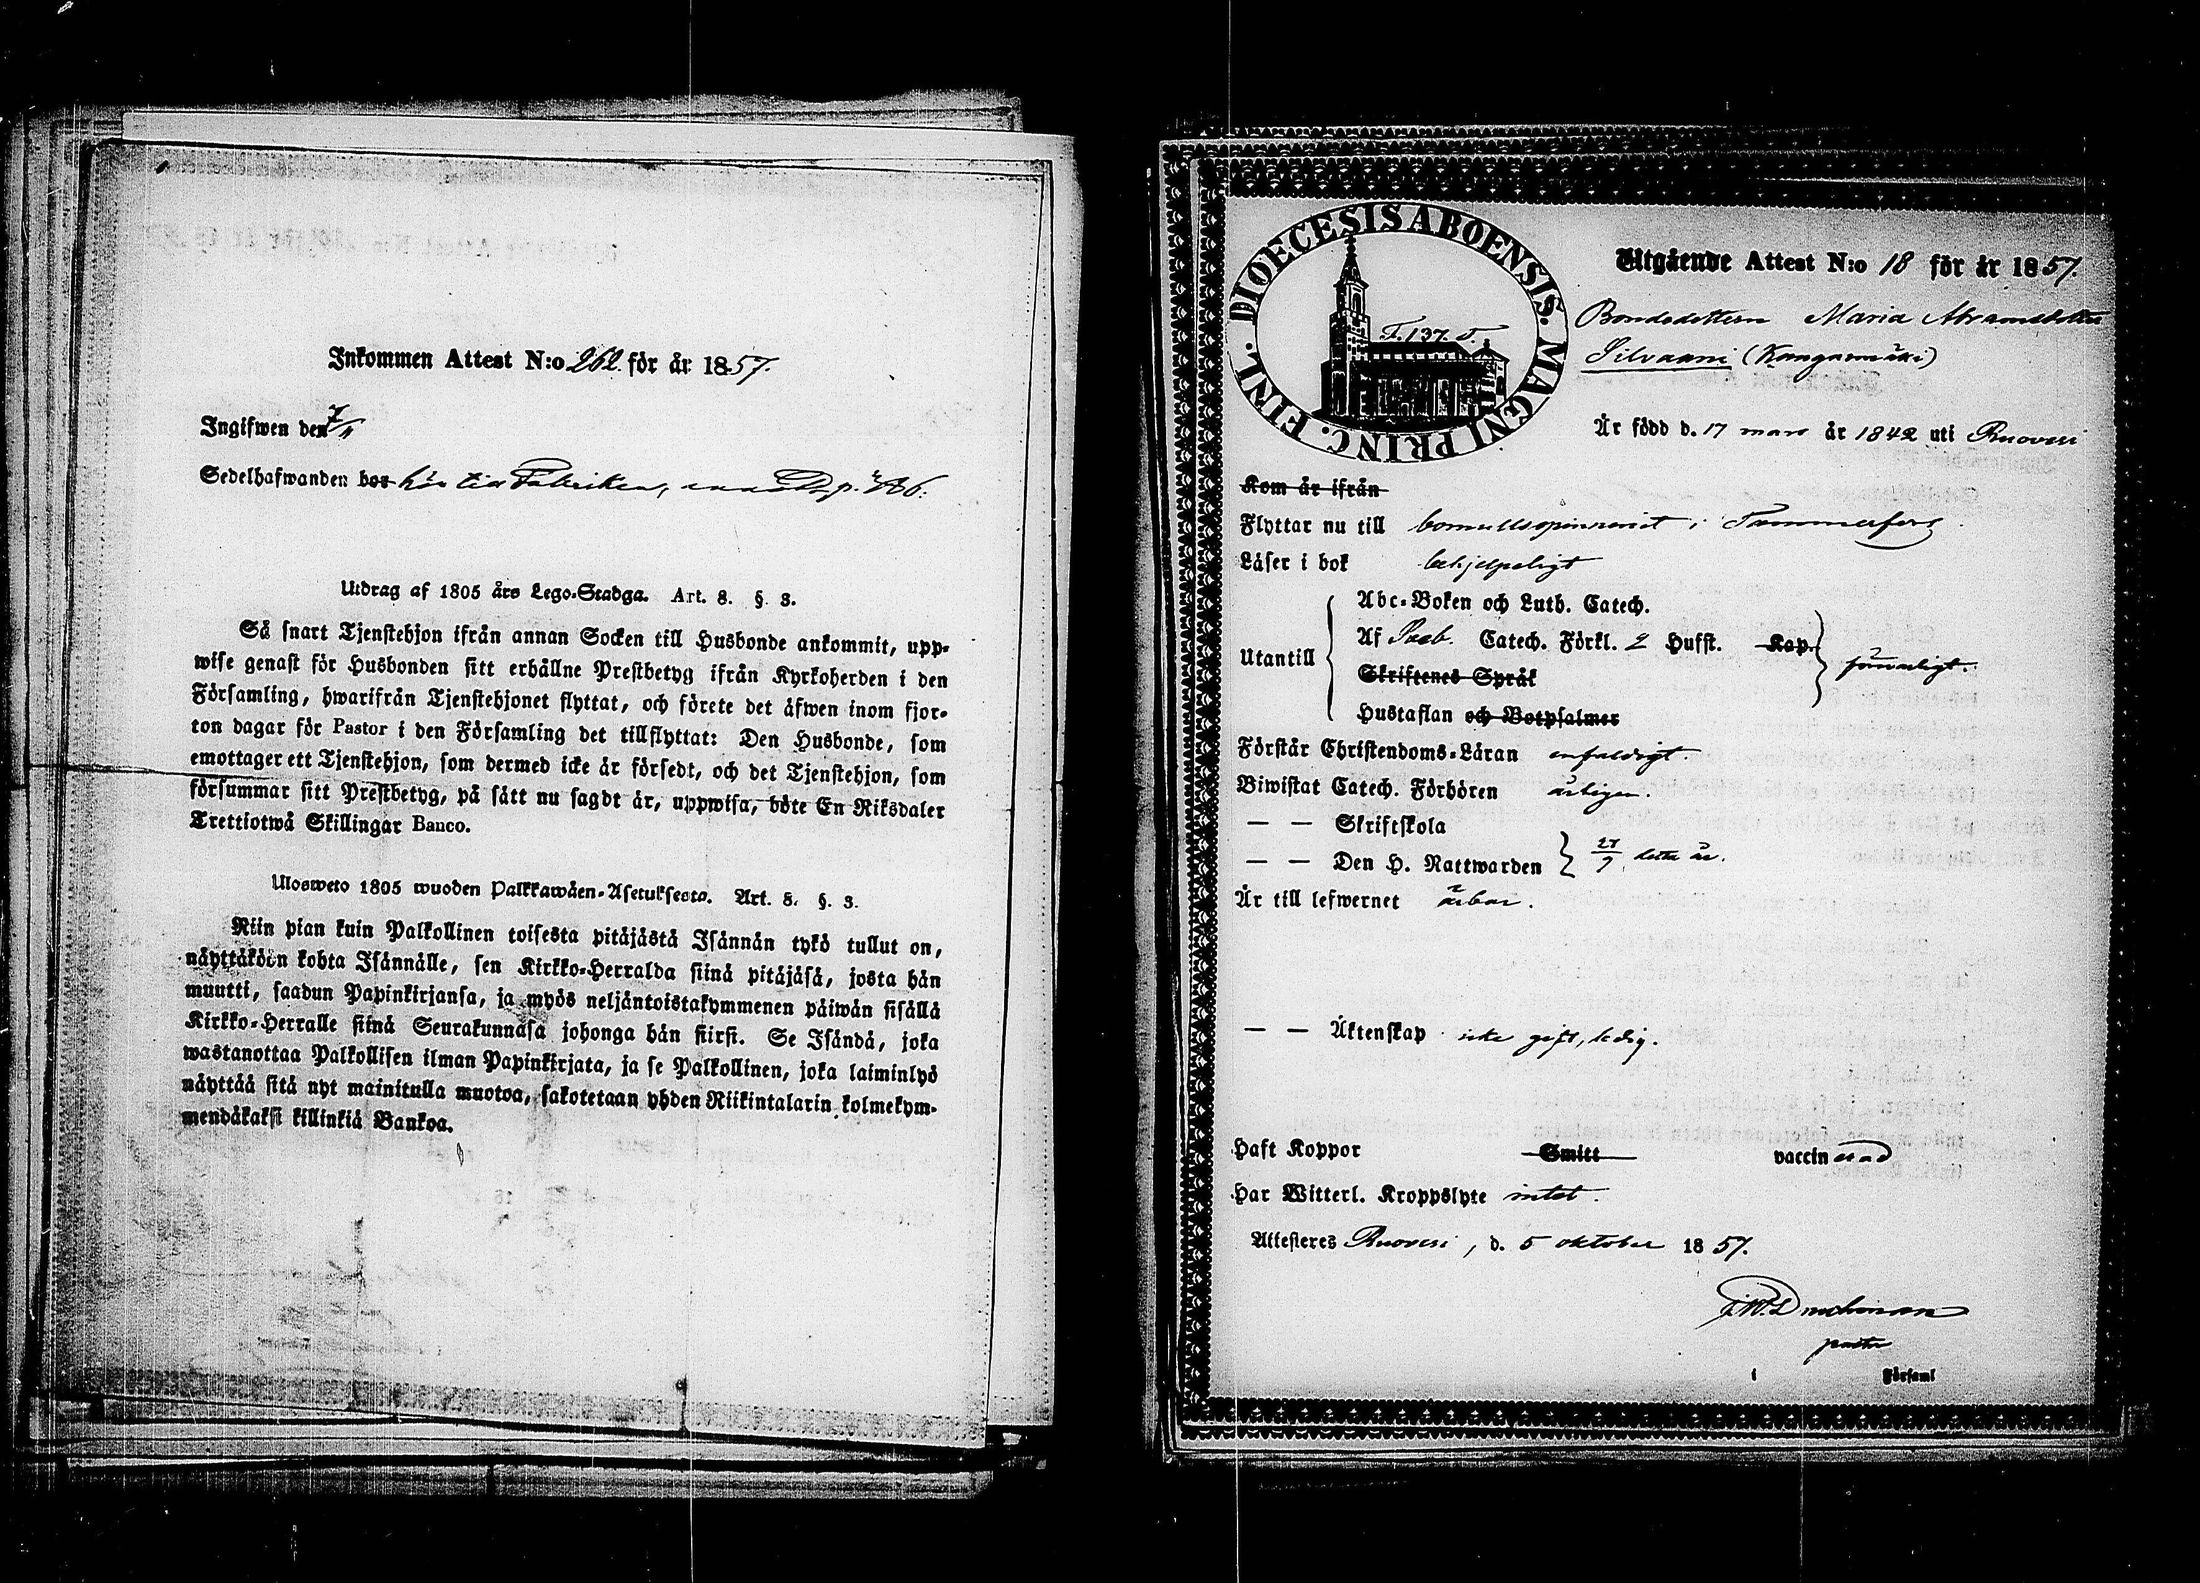 Inkommen Attest N:o 262. för år 1857.
Ingifwen den 7/11
Sedelhafwanden bor hör till Fabriken,
Utdrag af 1805 års Lego-Stadga. Art. 8. §. 3.
Så snart Tjenstehjon ifrån annan Socken till Husbonde ankommit, upp-
wise genast för Husbonden sitt erhållne Prestbetyg ifrån Kyrkoherden i den
Församling, hwarifrån Tjenstehjonet flyttat, och förete det äfwen inom fjor-
ton dagar för Pastor i den Församling det tillflyttat: Den Husbonde, som
emottager ett Tjenstehjon, som dermed icke är försedt, och det Tjenstehjon, som
försummar sitt Prestbetyg, på sätt nu sagdt är, uppwisa, böte En Riksdaler
Trettiotwå Skillingar Banco.
Ulosweto 1805 wuoden Palkkawäen-Asetuksesta. Art. 8. §. 3.
Niin pian kuin Palkollinen toisesta pitäjästä Isännän tykö tullut on,
näyttäköön kohta Isännälle, sen Kirkko-Herralda siinä pitäjäsä, josta hän
muutti, saadun Papinkirjansa, ja myös neljäntoistakymmenen päiwän sisällä
Kirkko-Herralle siinä Seurakunnasa johonga hän siirsi. Se Isändä, joka
wastanottaa Palkollisen ilman Papinkirjata, ja se Palkollinen, joka laiminlyö
näyttää sitä nyt mainitulla muotoa, sakotetaan yhden Riikintalarin kolmekym-
mendäkaksi killinkiä Bankoa.
DIOECESIS ABOENSIS. MAGNI PRINC. FINL.
F. 137.
Utgående Attest N:o 18 för år 1857.
Bondedottern Maria Abramsdotter
Silvanni (Kangasmäki)
Är född d. 17 mars år 1842 uti Ruovesi
Kom år ifrån
Flyttar nu till bomullsspinneriet i Tammerfors
Läser i bok behjelpeligt
Utantill
Abc-Boken och Luth. Catech.
Af Sveb. Catech. Förkl. 2 Hufst. Kap.
försvarligt.
Skriftenes Språk
Hustaflan och Botpsalmer
Förstår Christendoms-Läran enfaldigt.
Biwistat Catech. Förhören årligen.
— — Skriftskola
— — Den H. Nattwarden 27/9 detta år.
Är till lefwernet ärbar.
— — Äktenskap icke gift, ledig.
Haft Koppor Smitt vaccinerad
Har Witterl. Kroppslyte intet.
Attesteres Ruovesi, d. 5 oktober 1857.
pastor
i Församl